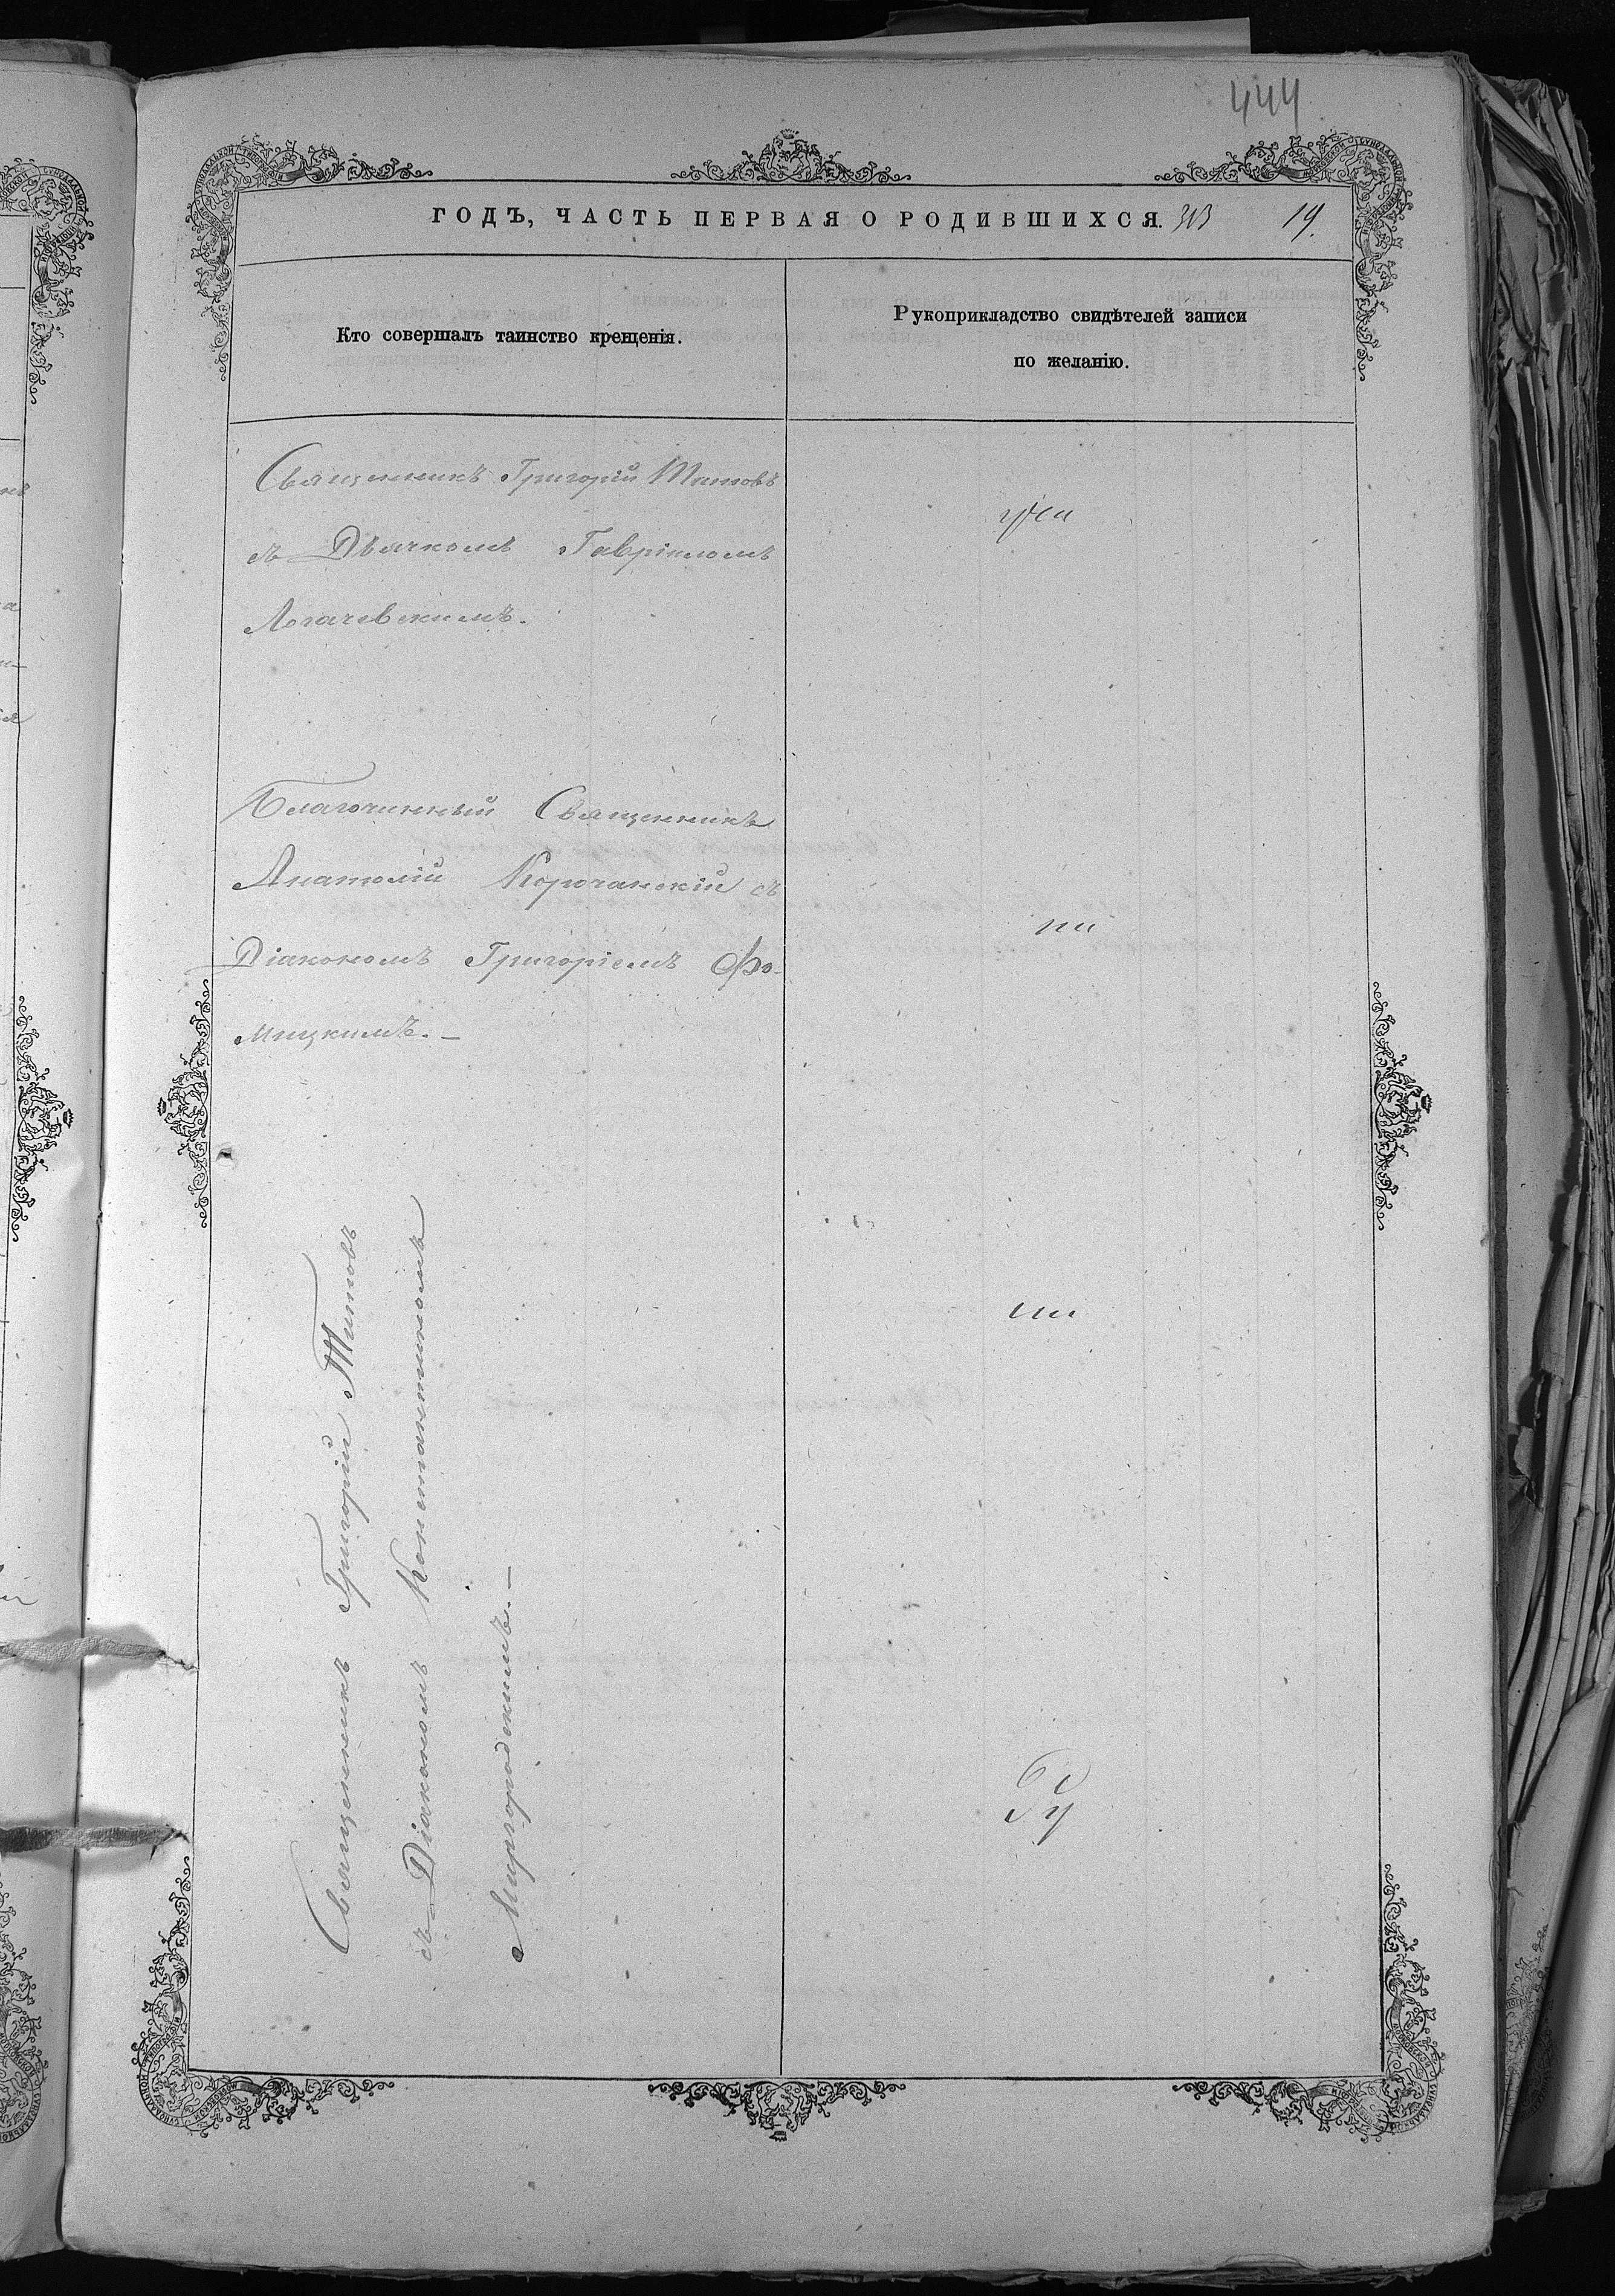 444
ГОДЪ, ЧАСТЬ ПЕРВАЯ О РОДИВШИХСЯ. 313 19.
Кто совершалъ таинство крещенія.
Рукоприкладство свидѣтелей записи
по желанію.
Священникъ Григорій Титовъ
съ Дьячкомъ Гавріиломъ
Логачевскимъ.
Благочинный Священникъ
Анатолій Корочанскій съ
Діакономъ Григоріемъ Фо-
мицкимъ. —
Священникъ Григорій Титовъ
съ Діакономъ Константиномъ
Миргородскимъ. —